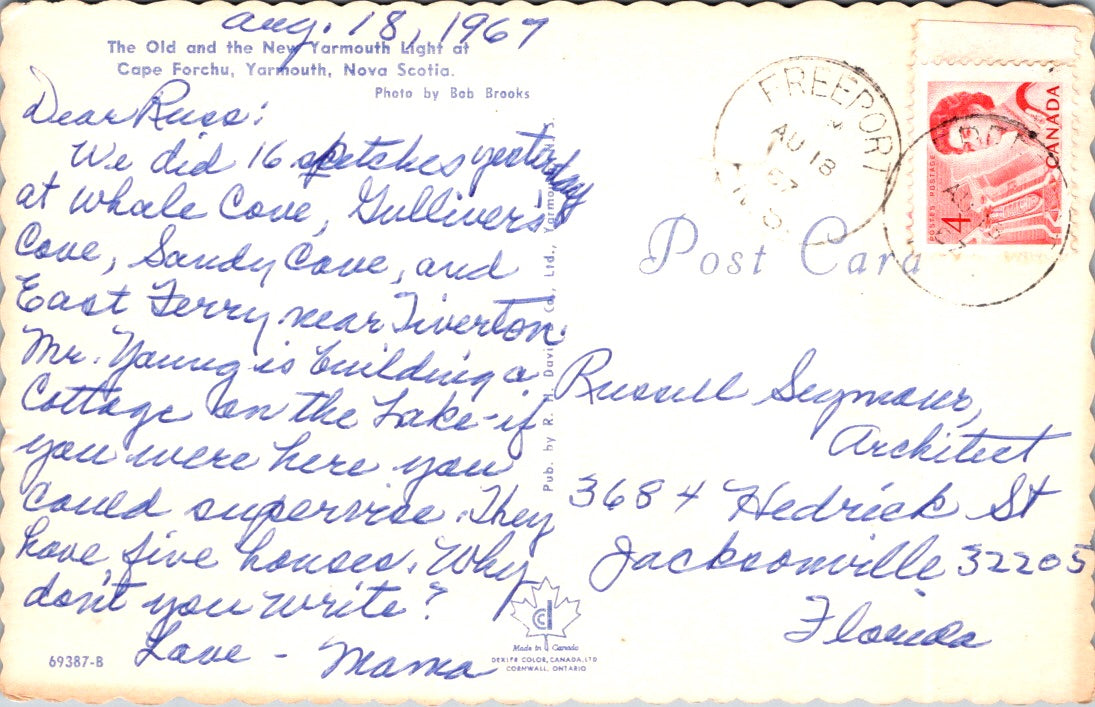 Aug. 18, 1967
The Old and the New Yarmouth Light at
Cape Forchu, Yarmouth, Nova Scotia.
Photo by Bob Brooks
Dear Russ:
We did 16 sketches yesterday
at Whale Cove, Gulliver's
Cove, Sandy Cove, and
East Ferry near Tiverton.
Mr. Young is building a
Cottage on the Lake - if
you were here you
could supervise. They
have five houses. Why
don't you write?
Love - Mama
69387-B
Pub. by R. H. Davis Co., Ltd., Yarmouth, N.S.
Made in Canada
DEXTER COLOR, CANADA, LTD
CORNWALL, ONTARIO
FREEPORT
AU 18
67
N.S.
CANADA
POSTES POSTAGE
4
Post Card
Russell Seymour,
Architect
3684 Hedrick St
Jacksonville 32205
Florida